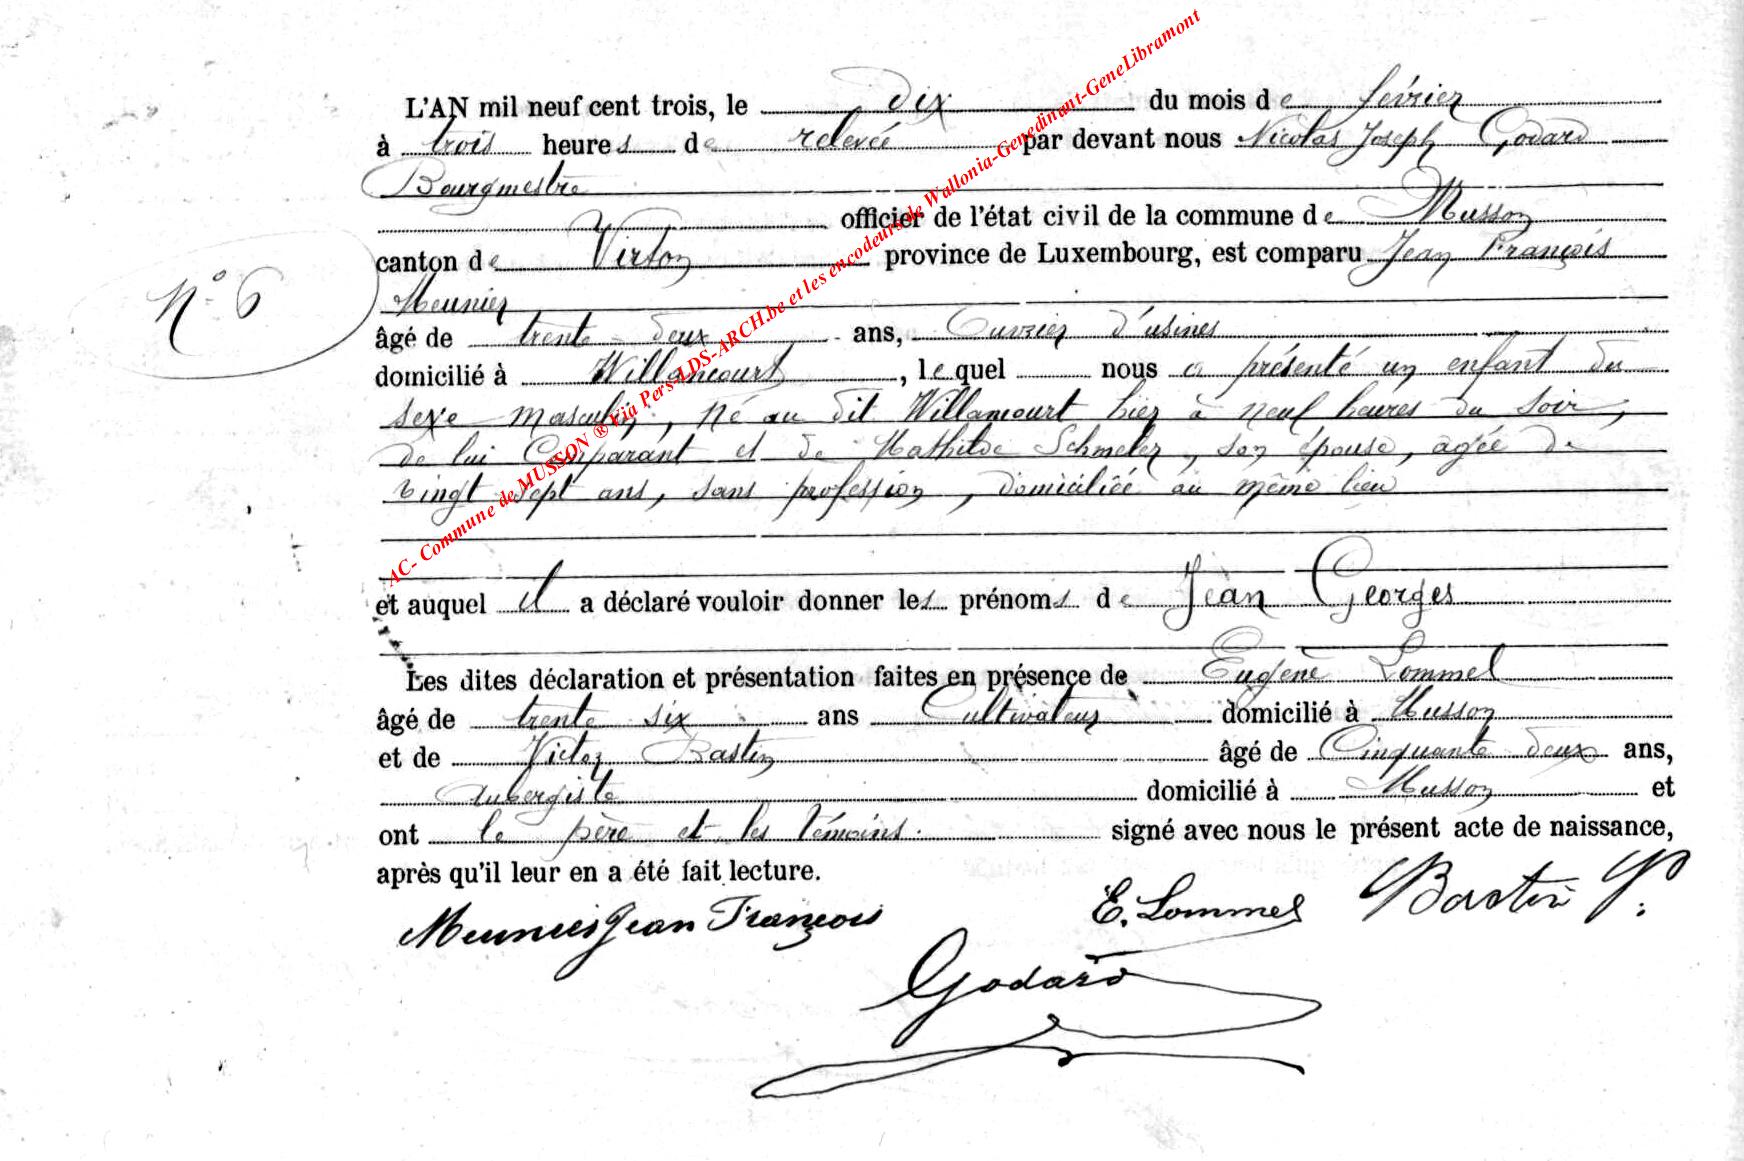 L'AN mil neuf cent trois, le dix du mois de février
à trois heures de relevée par devant nous Nicolas Joseph Godard
Bourgmestre
officier de l'état civil de la commune de Musson
canton de Virton province de Luxembourg, est comparu Jean François
Meunier
N° 6
âgé de trente-deux ans, Ouvrier d'usines
domicilié à Willancourt, lequel nous a présenté un enfant du
sexe masculin, né au dit Willancourt hier à neuf heures du soir,
de lui Comparant et de Mathilde Schmeler, son épouse, agée de
vingt sept ans, sans profession, domiciliée au même lieu
et auquel il a déclaré vouloir donner les prénoms de Jean Georges
Les dites déclaration et présentation faites en présence de Eugène Lommel
âgé de trente six ans Cultivateur domicilié à Musson
et de Victor Bastin âgé de Cinquante deux ans,
Aubergiste domicilié à Musson et
ont le père et les témoins signé avec nous le présent acte de naissance,
après qu'il leur en a été fait lecture.
Meunier Jean François E. Lommel Bastin V.
Godard
AC- Commune de MUSSON ® via Pers-LDS-ARCH.be et les encodeurs de Wallonia-Genedinant-GeneLibramont